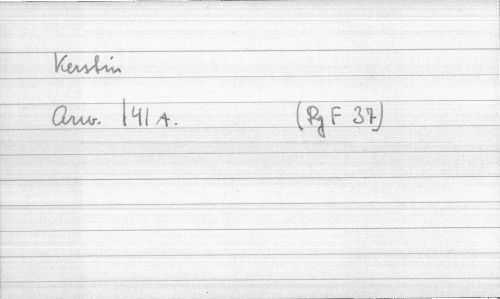 Kerstin
Arw. 141 A. (Rg F 37)